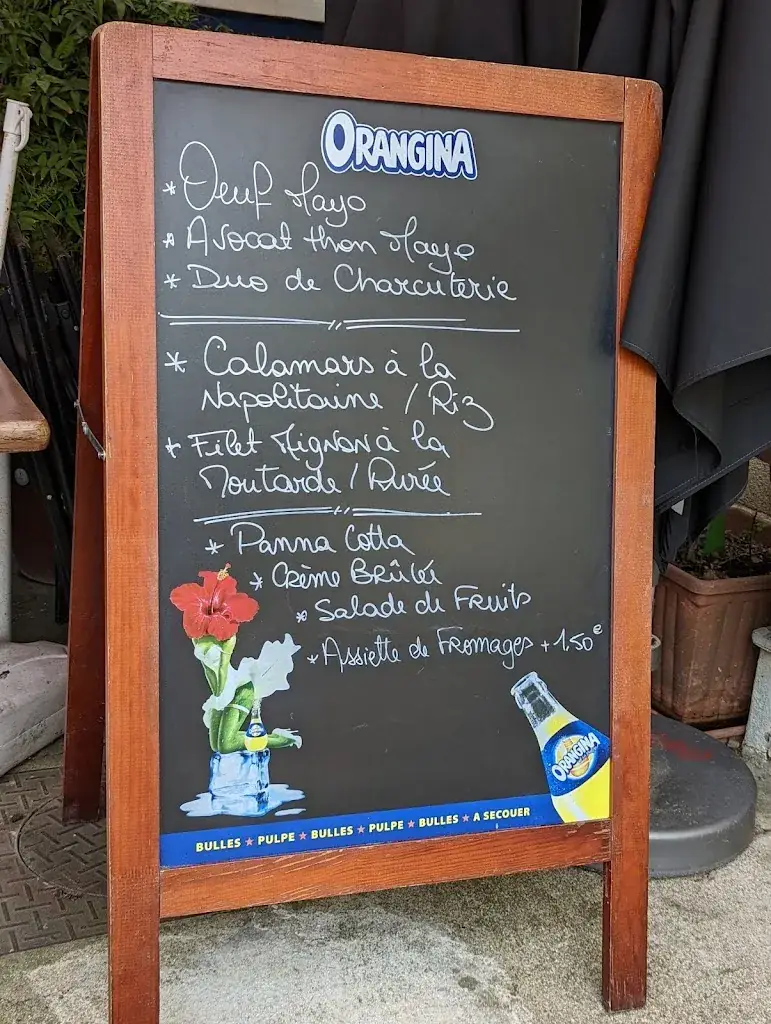 ORANGINA
* Oeuf Mayo
* Avocat thon Mayo
* Duo de Charcuterie
* Calamars à la
Napolitaine / Riz
* Filet Mignon à la
Moutarde / Purée
* Panna Cotta
* Crème Brûlée
* Salade de Fruits
* Assiette de Fromages + 1.50€
ORANGINA
BULLES ★ PULPE ★ BULLES ★ PULPE ★ BULLES ★ A SECOUER